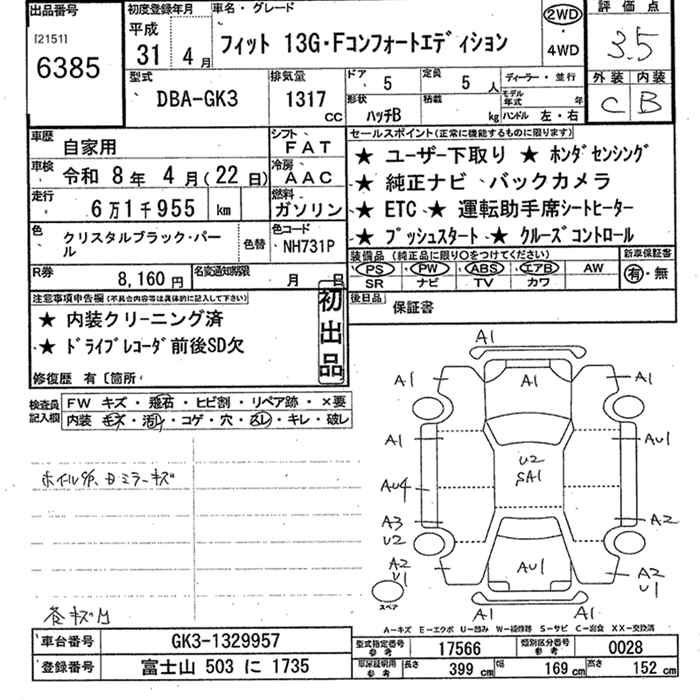 出品番号
[2151]
6385
初度登録年月
平成
31 4 月
車名・グレード
フィット 13G・Fコンフォートエディション
2WD
・
4WD
評価点
3.5
外装 内装
C B
型式
DBA-GK3
排気量
1317 cc
ドア
5
定員
5 人
形状
ハッチB
積載
kg
ディーラー・並行
モデル年式 年
ハンドル 左・右
車歴
自家用
シフト
FAT
車検
令和 8 年 4 月(22 日)
冷房
AAC
走行
6万1千955 km
燃料
ガソリン
色
クリスタルブラック・パール
色替
色コード
NH731P
R券
8,160 円
名変通知期限
月 日
セールスポイント(正常に機能するものに限ります)
★ ユーザー下取り ★ ホンダセンシング
★ 純正ナビ、バックカメラ
★ ETC ★ 運転助手席シートヒーター
★ プッシュスタート ★ クルーズコントロール
装備品(純正品に限り○をつけてください)
PS PW ABS エアB AW
SR ナビ TV カワ
新車保証書
有・無
後日品
保証書
注意事項申告欄(不具合内容等は具体的に記入して下さい)
★ 内装クリーニング済
★ ドライブレコーダ前後SD欠
修復歴 有〔箇所
初出品
検査員記入欄
FW キズ・飛石・ヒビ割・リペア跡・×要
内装 キズ・汚レ・コゲ・穴・スレ・キレ・破レ
A1
A1 A1 A1
A1 AU1
U2
SA1
AU4
A3
U2
A2
A2
U1
AU1
A2
U1
A1 A1
スペア
A-キズ E-エクボ U-凹み W-補修跡 S-サビ C-腐食 XX-交換済
車台番号
GK3-1329957
登録番号
富士山 503 に 1735
型式指定番号 参考
17566
類別区分番号 参考
0028
車庫証明用 参考
長さ 399 cm
幅 169 cm
高さ 152 cm